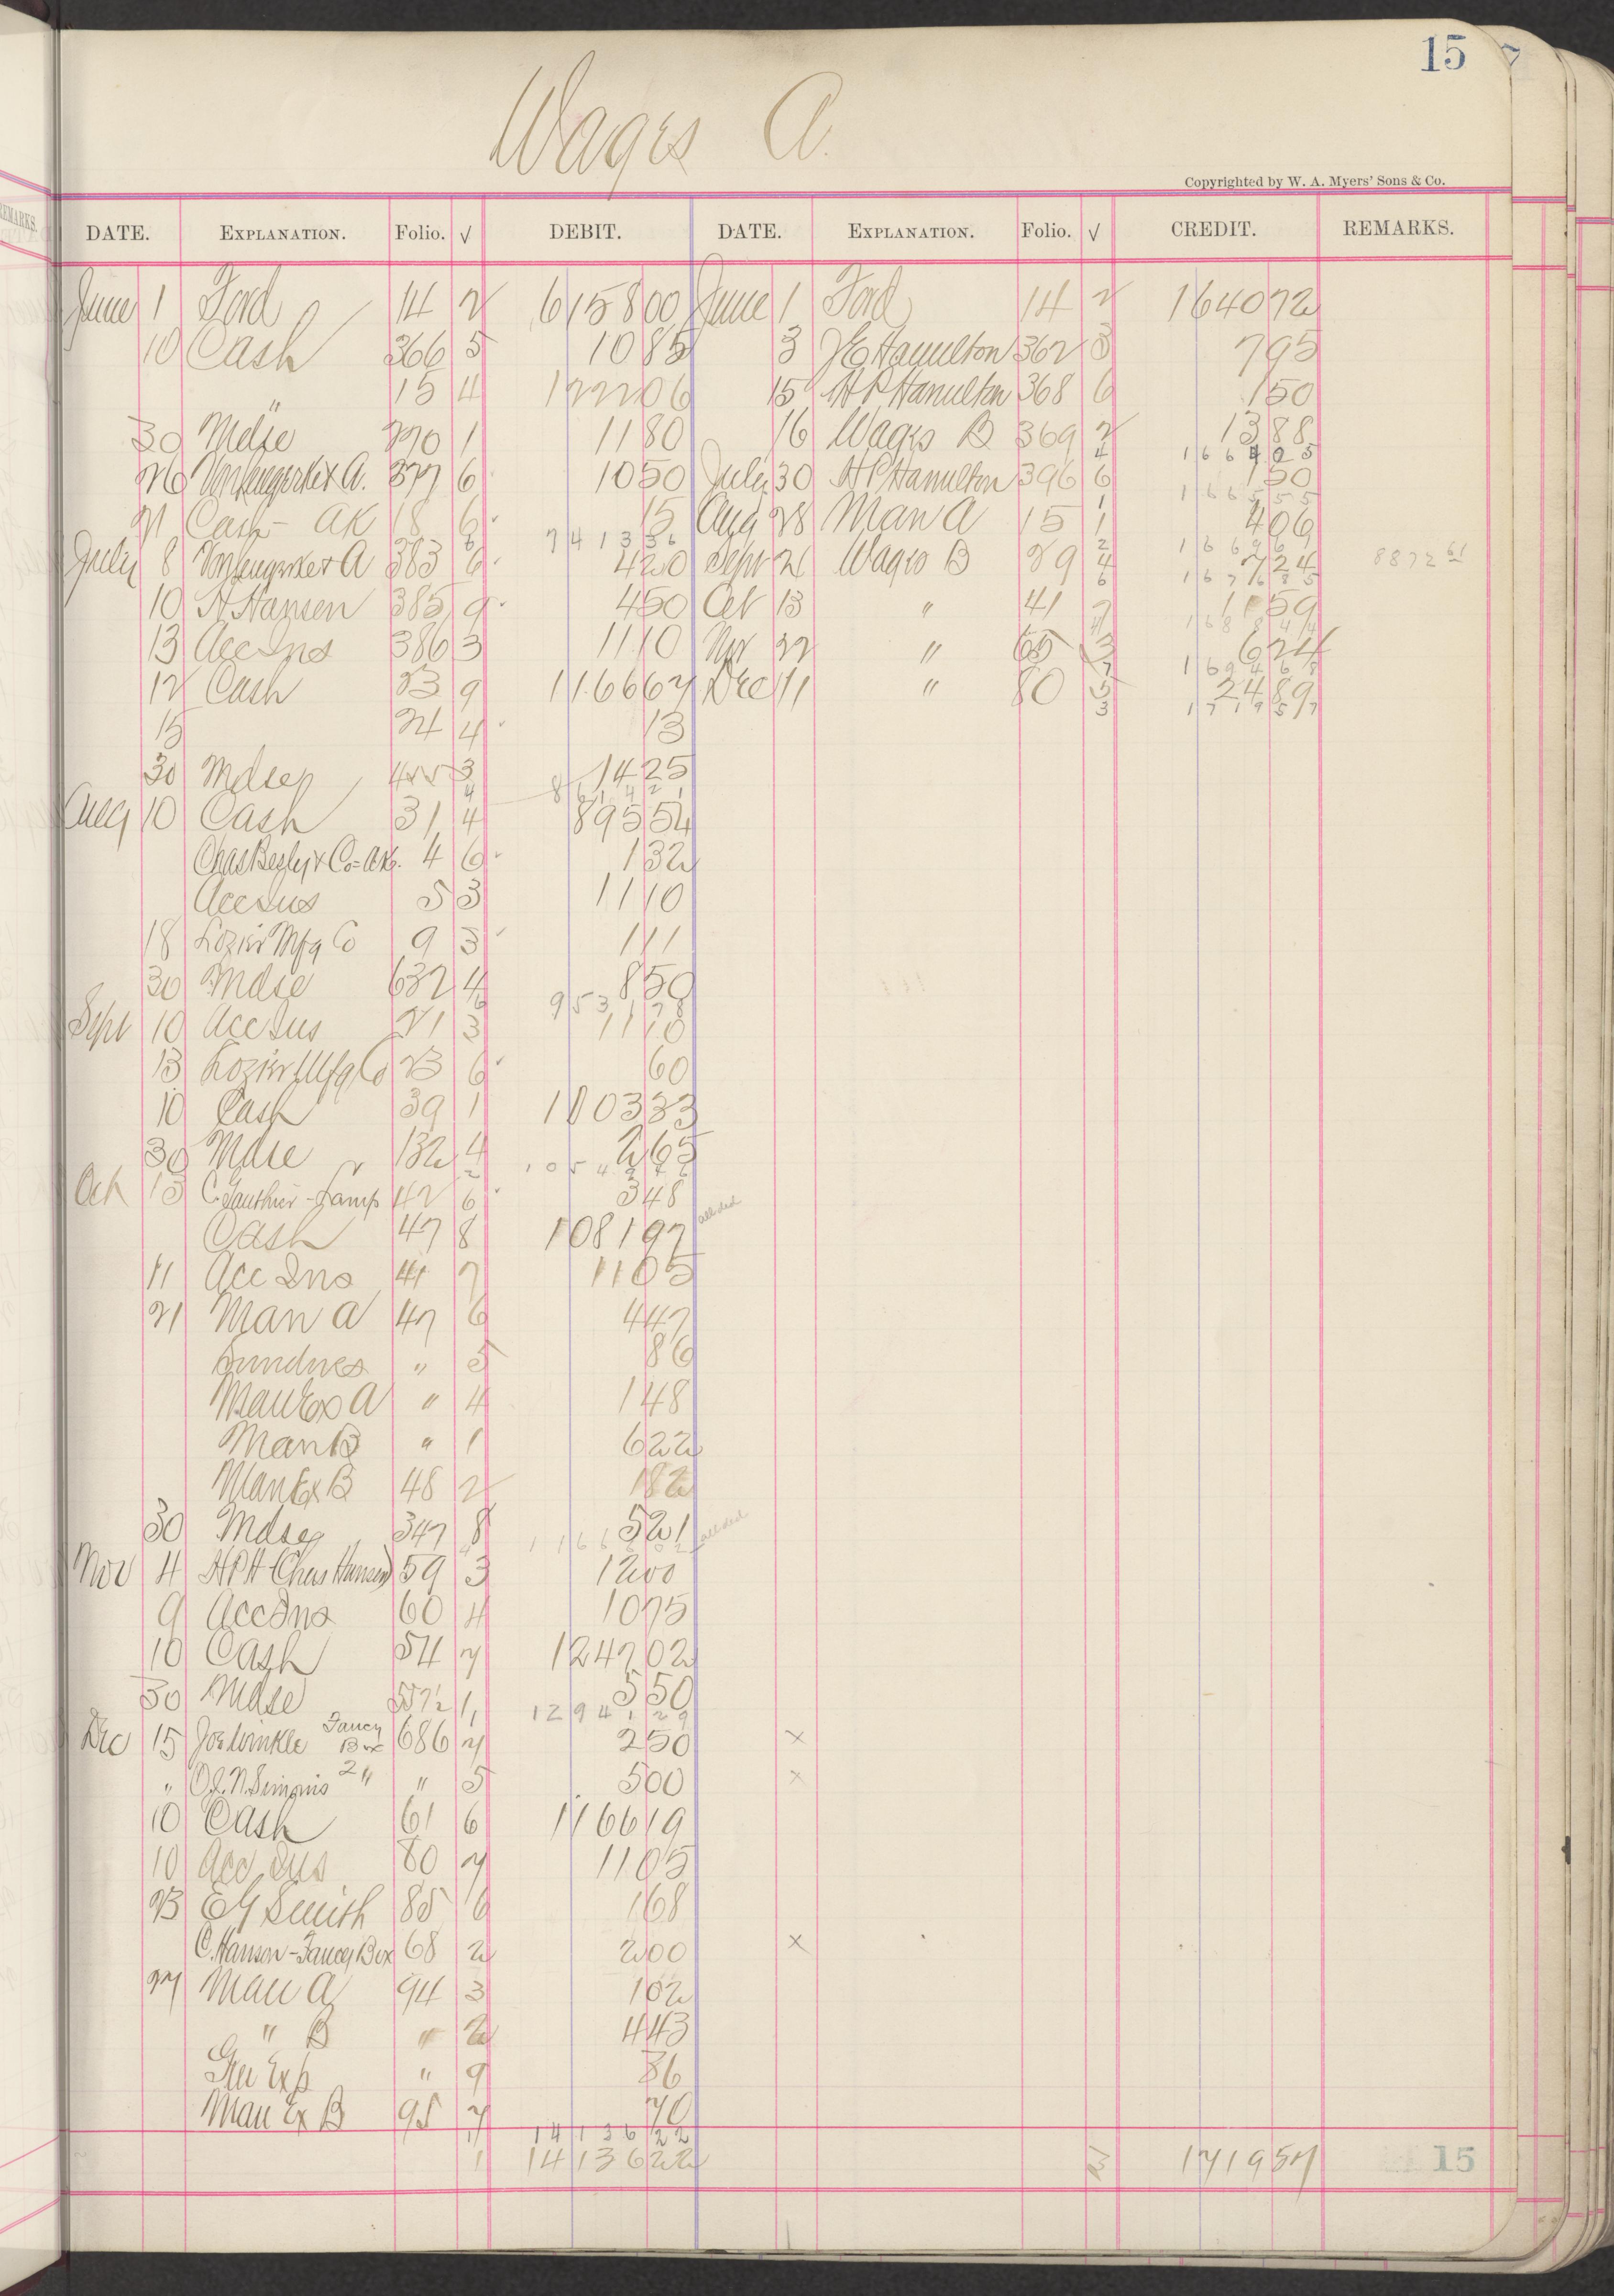 15
Wages A.
Copyrighted by W. A. Myers' Sons & Co.
DATE. EXPLANATION. Folio. √ DEBIT. DATE. EXPLANATION. Folio. √ CREDIT. REMARKS.
June 1 Ford 14 2 6158 00 June 1 Ford 14 2 1640 72
10 Cash 366 5 10 85 3 Hamilton 362 3 7 95
" 15 4 1222 06 15 H P Hamilton 368 6 1 50
30 Mdse 270 1 11 80 16 Wages B 369 2 13 88
1664 05
26 A. 377 6 10 50 July 30 H P Hamilton 396 6 1 50
1665 55
21 Cash - AK 18 6 15 Aug 28 Man A 15 1 4 06
7413 36 1669 61
July 8 A 383 6 4 20 Sept 21 Wages B 29 4 7 24 8872 61
1676 85
10 H Hansen 385 9 4 50 Oct 13 " 41 7 11 59
1688 44
13 Acc Ins 386 3 11 10 Nov 22 " 65 3 6 24
1694 68
12 Cash 23 9 1166 67 Dec 11 " 80 5 24 89
1719 57
15 24 4 13
30 Mdse 3 14 25
8614 21
Aug 10 Cash 31 4 895 54
Chas Besly & Co - AK. 4 6 1 32
Acc Ins 5 3 11 10
18 Lozier Mfg Co 9 3 1 11
30 Mdse 632 4 8 50
9531 78
Sept 10 Acc Ins 21 3 11 10
13 Lozier Mfg Co 23 6 60
10 Cash 39 1 1003 33
30 Mdse 132 4 2 65
Oct 13 C Gauthier - Lamp 42 6 3 48
Cash 47 8 1081 97
11 Acc Ins 41 7 11 05
21 Man A 47 6 4 47
Sundries " 5 86
Man Ex A " 4 1 48
Man B " 1 6 22
Man Ex B 48 2 1 82
30 Mdse 347 8 5 21
Nov 4 H P H (Chas Hansen) 59 3 12 00
9 Acc Ins 60 4 10 75
10 Cash 54 7 1247 02
30 Mdse 557½ 1 5 50
12941 29
Dec 15 Joe Winkle Fancy Box 686 7 2 50 x
" 2 " " 5 5 00 x
10 Cash 61 6 1166 19
10 Acc Ins 80 7 11 05
23 E G Smith 85 6 1 68
C. Hanson - Fancy Box 68 2 2 00 x
27 Man A 94 3 1 02
" B " 2 4 43
Gen Exp " 9 36
Man Ex B 95 7 70
14136 22
1 14136 22 3 1719 57 15